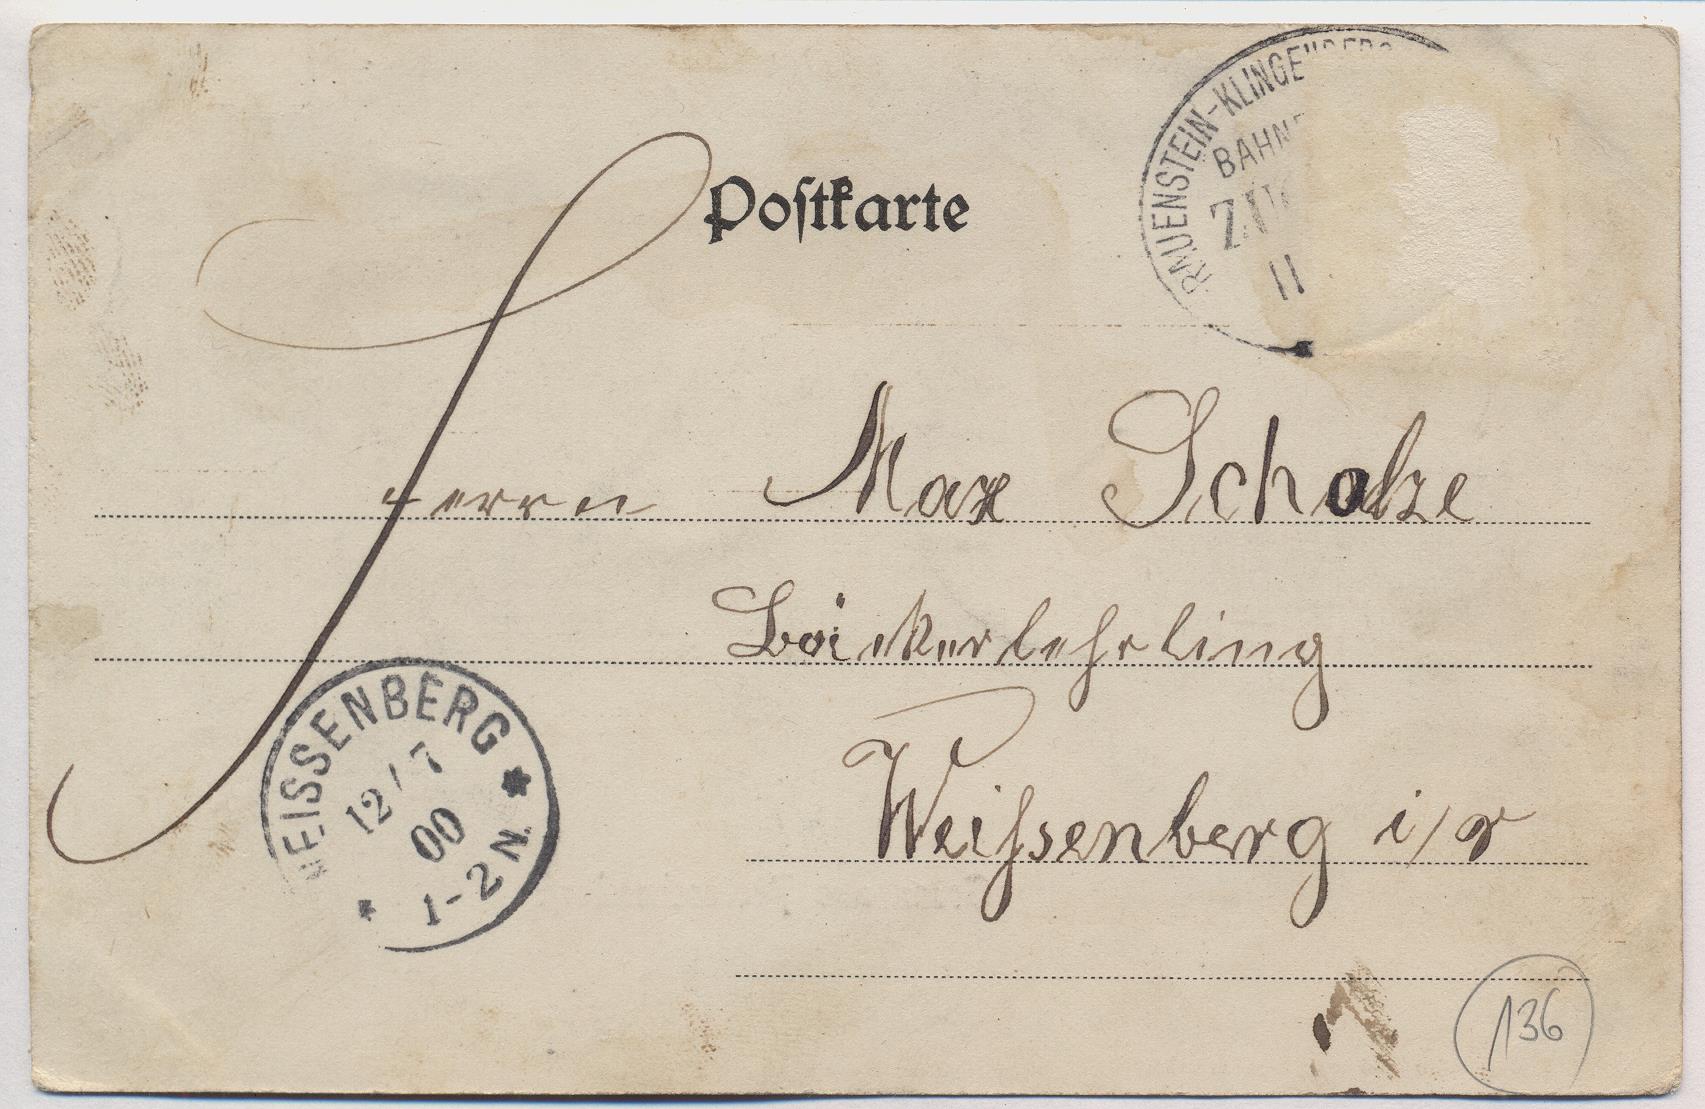 Postkarte
RAUENSTEIN-KLINGENBERG
BAHNP
ZUG
11
Herrn Max Scholze
Bäckerlehrling
Weißsenberg i/
WEISSENBERG
12/7
00
1-2N.
136